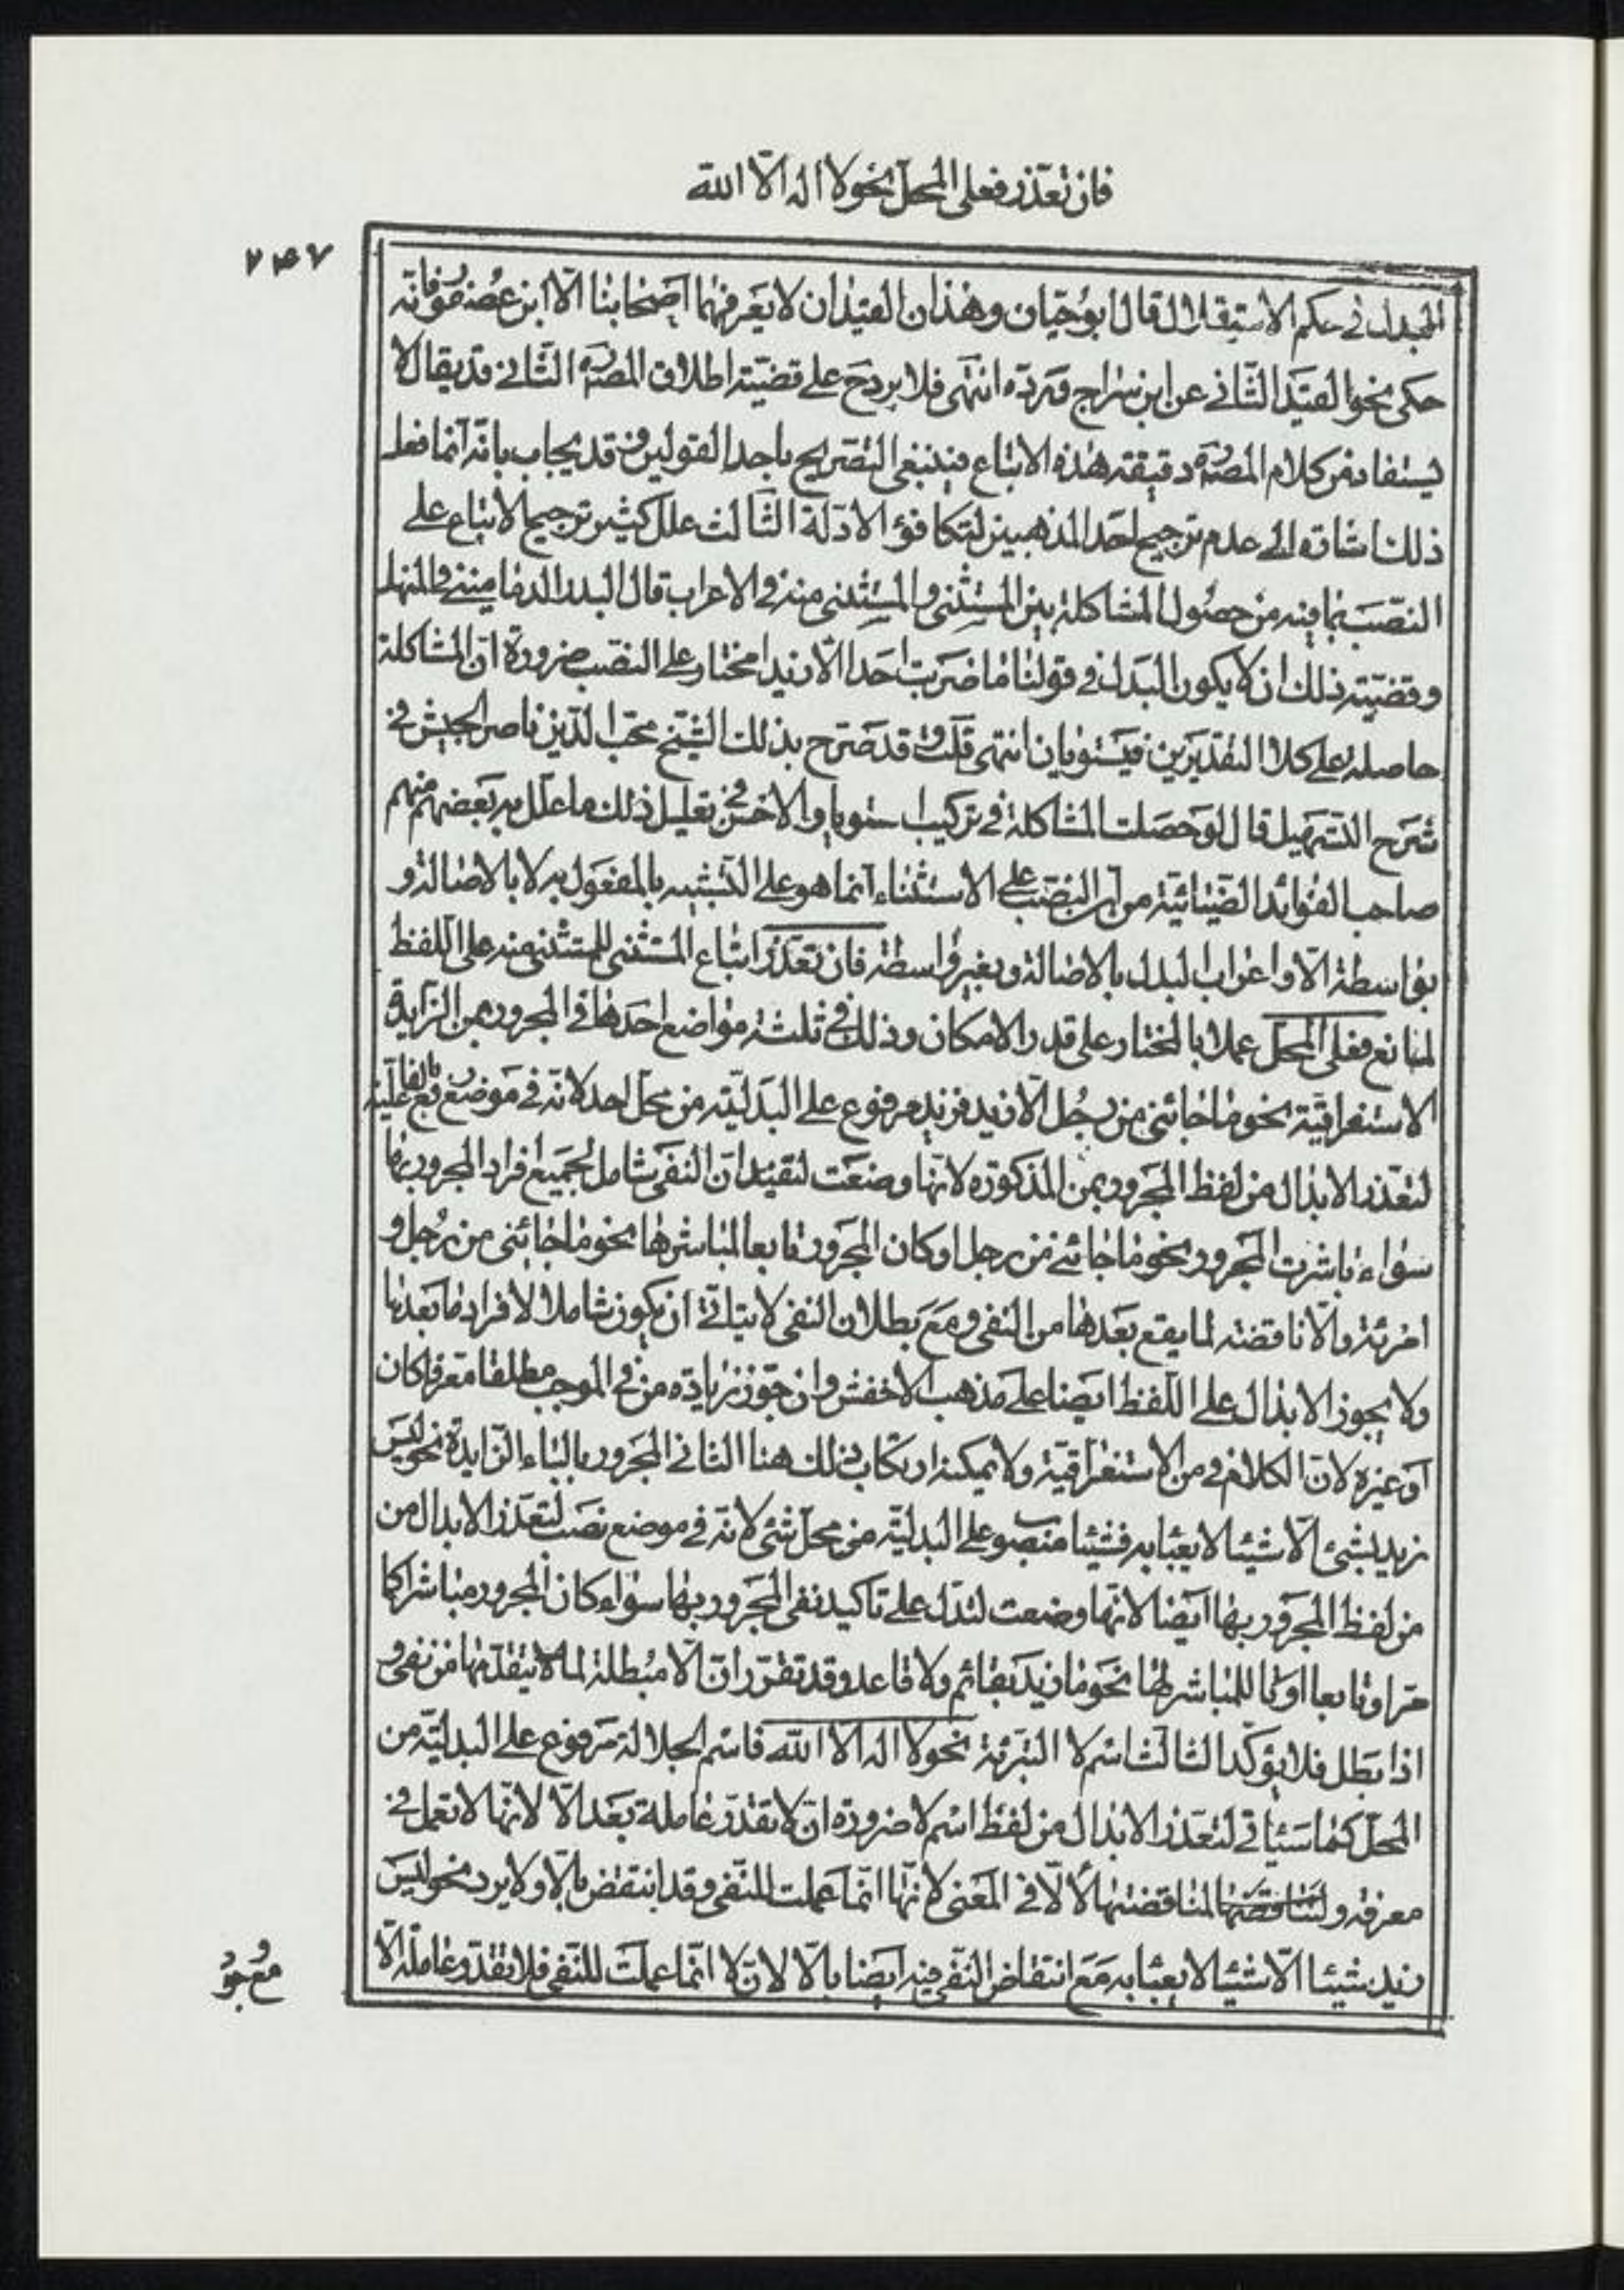 فان تعذر فعلى المحل نحو لا اله الّا الله
٢٤٧
البدل فى حكم الاستقلال قال ابو حيان وهذان القيدان لا يعرفهما اصحابنا الّا ابن عصفور فانه
حكى نحو القيد الثانى عن ابن سراج ورده انتهى فلا يرد ح على قضيته اطلاق المصنّف الثانى قد يقال لا
يستفاد من كلام المصنّف دقيقته هذه الاتباع فينبغى التصريح باحد القولين وقد يجاب بانه انما فعل
ذلك اشارة الى عدم ترجيح احد المذهبين لتكافؤ الادلة الثالث علل كثير ترجيح الاتباع على
النصب بما فيه من حصول المشاكلة بين المستثنى والمستثنى منه فى الاعراب قال البدر الدمامينى فى المنهل
وقضيّته ذلك ان لا يكون البدل فى قولنا ما ضربت احدا الّا زيدا مختار على النصب ضرورة انّ المشاكلة
حاصله على كلا التقديرين فيستويان انتهى قلت وقد صرّح بذلك الشيخ محبّ الدّين ناصر الجيش فى
شرح التسهيل قال لو حصلت المشاكلة فى تركيب استويا والاحسن فى تعليل ذلك ما علل به بعضهم منهم
صاحب الفوائد الضيائيّة من انّ النصب على الاستثناء انما هو على التشبيه بالمفعول به لا بالاصالة و
بواسطة الّا واعراب البدل بالاصالة وبغير واسطة فان تعذّر اتباع المستثنى للمستثنى منه على اللفظ
لمانع فعلى المحلّ عملا بالمختار على قدر الامكان وذلك فى ثلثة مواضع احدها فى المجرور بمن الزايدة
الاستغراقيّة نحو ما جائنى من رجل الّا زيد فزيد مرفوع على البدليّة من محلّ احد لانّه فى موضع رفع بالفاعليّة
لتعذر الابدال من لفظ المجرور بمن المذكورة لانّها وضعت لتفيد انّ النفى شامل لجميع افراد المجرور بها
سواء باشرت المجرور نحو ما جائنى من رجل او كان المجرور تابعا لمباشرها نحو ما جائنى من رجل و
امرئة والّا ناقضة لما يقع بعدها من النفى ومع بطلان النفى لا يتاتّى ان يكون شاملا لافراد ما بعدها
ولا يجوز الابدال على اللفظ ايضا على مذهب الاخفش وان جوّز زيادة من فى الموجب مطلقا معرفا كان
او غيره لانّ الكلام فى من الاستغراقيّة ولا يمكنه ارتكاب ذلك هنا الثانى المجرور بالباء الزايدة نحو ليس
زيد بشىء الّا شيئا لا يعبأ به فشيئا منصوب على البدليّة من محلّ شىء لانّه فى موضع نصب لتعذر الابدال من
من لفظ المجرور بها ايضا لانّها وضعت لتدلّ على تاكيد نفى المجرور بها سواء كان المجرور مباشرا كما
مرّ او تابعا او لا للمباشر لها نحو ما زيد بقائم ولا قاعد وقد تقرّر انّ الّا مبطلة لما لا يتقدّمها من نفى و
اذا بطل فلا يؤكّد الثالث اسم لا التبرئة نحو لا اله الا الله فاسم الجلالة مرفوع على البدليّة من
المحلّ كما سيأتى لتعذر الابدال من لفظ اسم لا ضرورة انّ لا تقدر عاملة بعد الّا لانّها لا تعمل فى
معرفة ولمناقضتها لمناقضتها الّا فى المعنى لانّها انّما عملت للنّفى وقد انتقض بالّا ولا يرد نحو ليس
زيد شيئا الّا شيئا لا يعبأ به مع انتقاض النّفى فيه ايضا بالّا لانّ لا انّما عملت للنّفى فلا تقدّر عاملة الّا
مع وجود